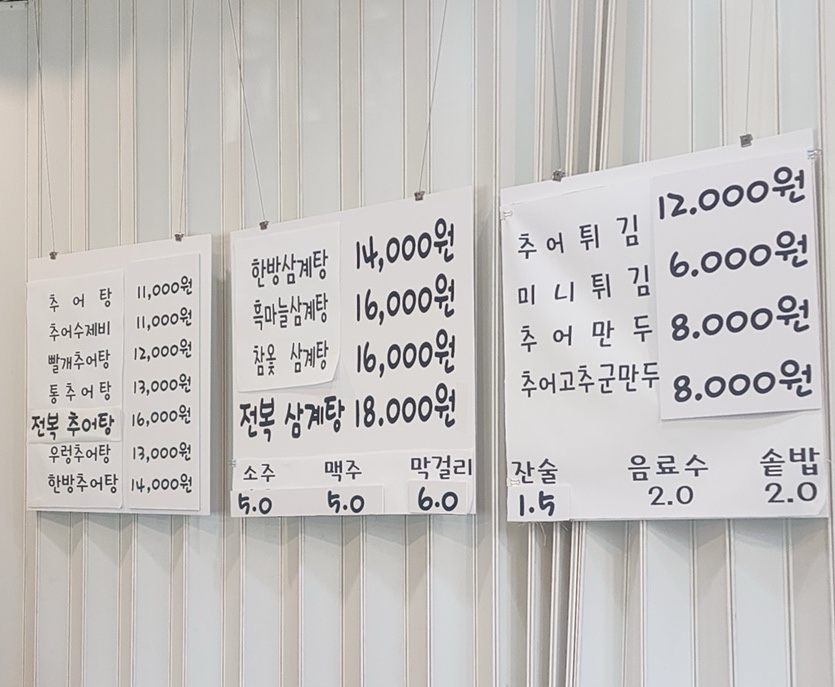 추 어 탕 11,000원
추어수제비 11,000원
빨개추어탕 12,000원
통 추 어 탕 13,000원
전복 추어탕 16,000원
우렁추어탕 13,000원
한방추어탕 14,000원
한방삼계탕 14,000원
흑마늘삼계탕 16,000원
참옻 삼계탕 16,000원
전복 삼계탕 18.000원
소주 맥주 막걸리
5.0 5.0 6.0
추 어 튀 김 12.000원
미 니 튀 김 6.000원
추 어 만 두 8.000원
추어고추군만두 8.000원
잔술 음료수 솥밥
1.5 2.0 2.0